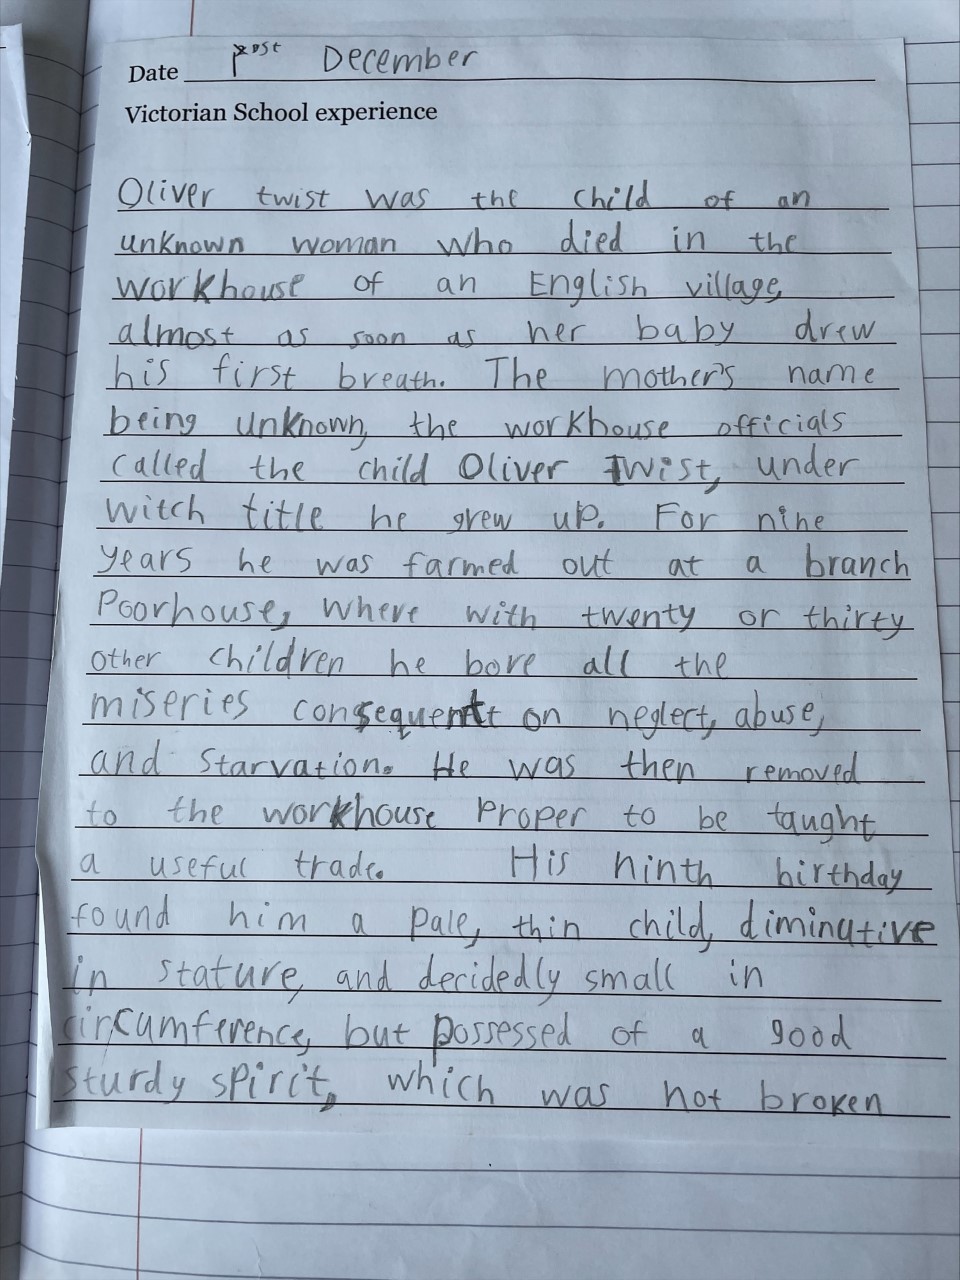 Date December
Victorian School experience
Oliver twist was the child of an
unknown woman who died in the
workhouse of an English village,
almost as soon as her baby drew
his first breath. The mother's name
being unknown, the workhouse officials
called the child Oliver Twist, under
witch title he grew up. For nine
years he was farmed out at a branch
Poorhouse, where with twenty or thirty
other children he bore all the
miseries consequent on neglect, abuse,
and starvation. He was then removed
to the workhouse proper to be taught
a useful trade. His ninth birthday
found him a pale, thin child, diminutive
in stature, and decidedly small in
circumference, but possessed of a good
sturdy spirit, which was not broken